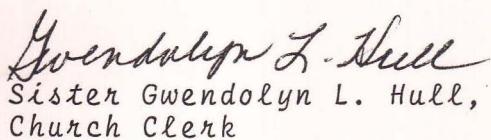 Gwendolyn L. Hull
Sister Gwendolyn L. Hull,
Church Clerk